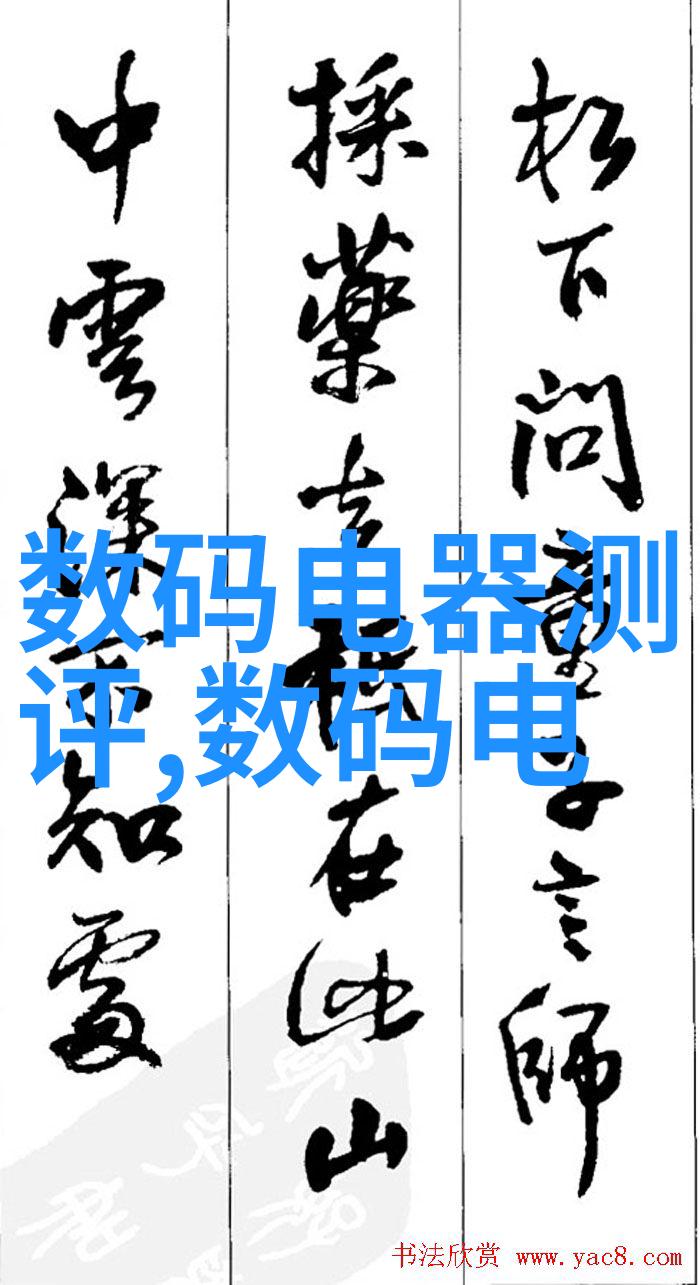 松下问童子言師
採藥去祇在此山
中雲深不知處
数码电器测
评,数码电
书法欣赏 www.yac8.com